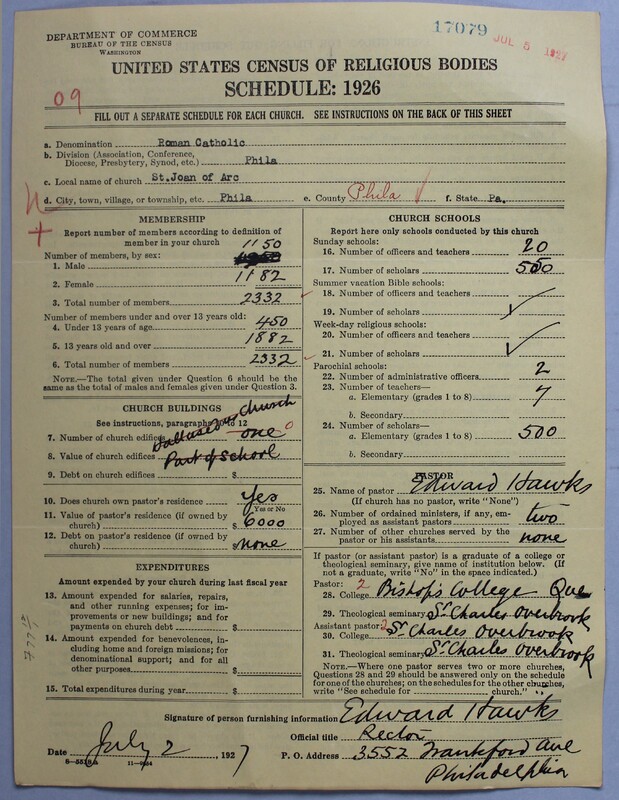 DEPARTMENT OF COMMERCE
BUREAU OF THE CENSUS
WASHINGTON
17079
JUL 5 1927
UNITED STATES CENSUS OF RELIGIOUS BODIES
SCHEDULE: 1926
09
FILL OUT A SEPARATE SCHEDULE FOR EACH CHURCH. SEE INSTRUCTIONS ON THE BACK OF THIS SHEET
a. Denomination Roman Catholic
b. Division (Association, Conference,
Diocese, Presbytery, Synod, etc.) Phila
c. Local name of church St.Joan of Arc
d. City, town, village, or township, etc. Phila e. County Phila f. State Pa.
MEMBERSHIP
Report number of members according to definition of
member in your church
Number of members, by sex: 1150
1. Male
2. Female 1182
3. Total number of members 2332
Number of members under and over 13 years old:
4. Under 13 years of age 450
5. 13 years old and over 1882
6. Total number of members 2332
NOTE.—The total given under Question 6 should be the
same as the total of males and females given under Question 3.
CHURCH BUILDINGS
See instructions, paragraphs 10 to 12
Church
7. Number of church edifices one 0
8. Value of church edifices Part of School
9. Debt on church edifices $
10. Does church own pastor's residence Yes
Yes or No
11. Value of pastor's residence (if owned by
church) $ 6000
12. Debt on pastor's residence (if owned by
church) $ none
EXPENDITURES
Amount expended by your church during last fiscal year
13. Amount expended for salaries, repairs,
and other running expenses; for im-
provements or new buildings; and for
payments on church debt $
14. Amount expended for benevolences, in-
cluding home and foreign missions; for
denominational support; and for all
other purposes $
15. Total expenditures during year $
CHURCH SCHOOLS
Report here only schools conducted by this church
Sunday schools:
16. Number of officers and teachers 20
17. Number of scholars 500
Summer vacation Bible schools:
18. Number of officers and teachers
19. Number of scholars
Week-day religious schools:
20. Number of officers and teachers
21. Number of scholars
Parochial schools:
22. Number of administrative officers 2
23. Number of teachers—
a. Elementary (grades 1 to 8) 7
b. Secondary
24. Number of scholars—
a. Elementary (grades 1 to 8) 500
b. Secondary
PASTOR
25. Name of pastor Edward Hawks
(If church has no pastor, write "None")
26. Number of ordained ministers, if any, em-
ployed as assistant pastors two
27. Number of other churches served by the
pastor or his assistants none
If pastor (or assistant pastor) is a graduate of a college or
theological seminary, give name of institution below. (If
not a graduate, write "No" in the space indicated.)
Pastor: 2
28. College Bishop's College Que
29. Theological seminary St Charles Overbrook
Assistant pastor: 2
30. College St Charles Overbrook
31. Theological seminary St Charles Overbrook
NOTE.—Where one pastor serves two or more churches,
Questions 28 and 29 should be answered only on the schedule
for one of the churches; on the schedules for the other churches,
write "See schedule for church."
Signature of person furnishing information Edward Hawks
Official title Rector
Date July 2 1927 P. O. Address 3552 Frankford Ave
Philadelphia